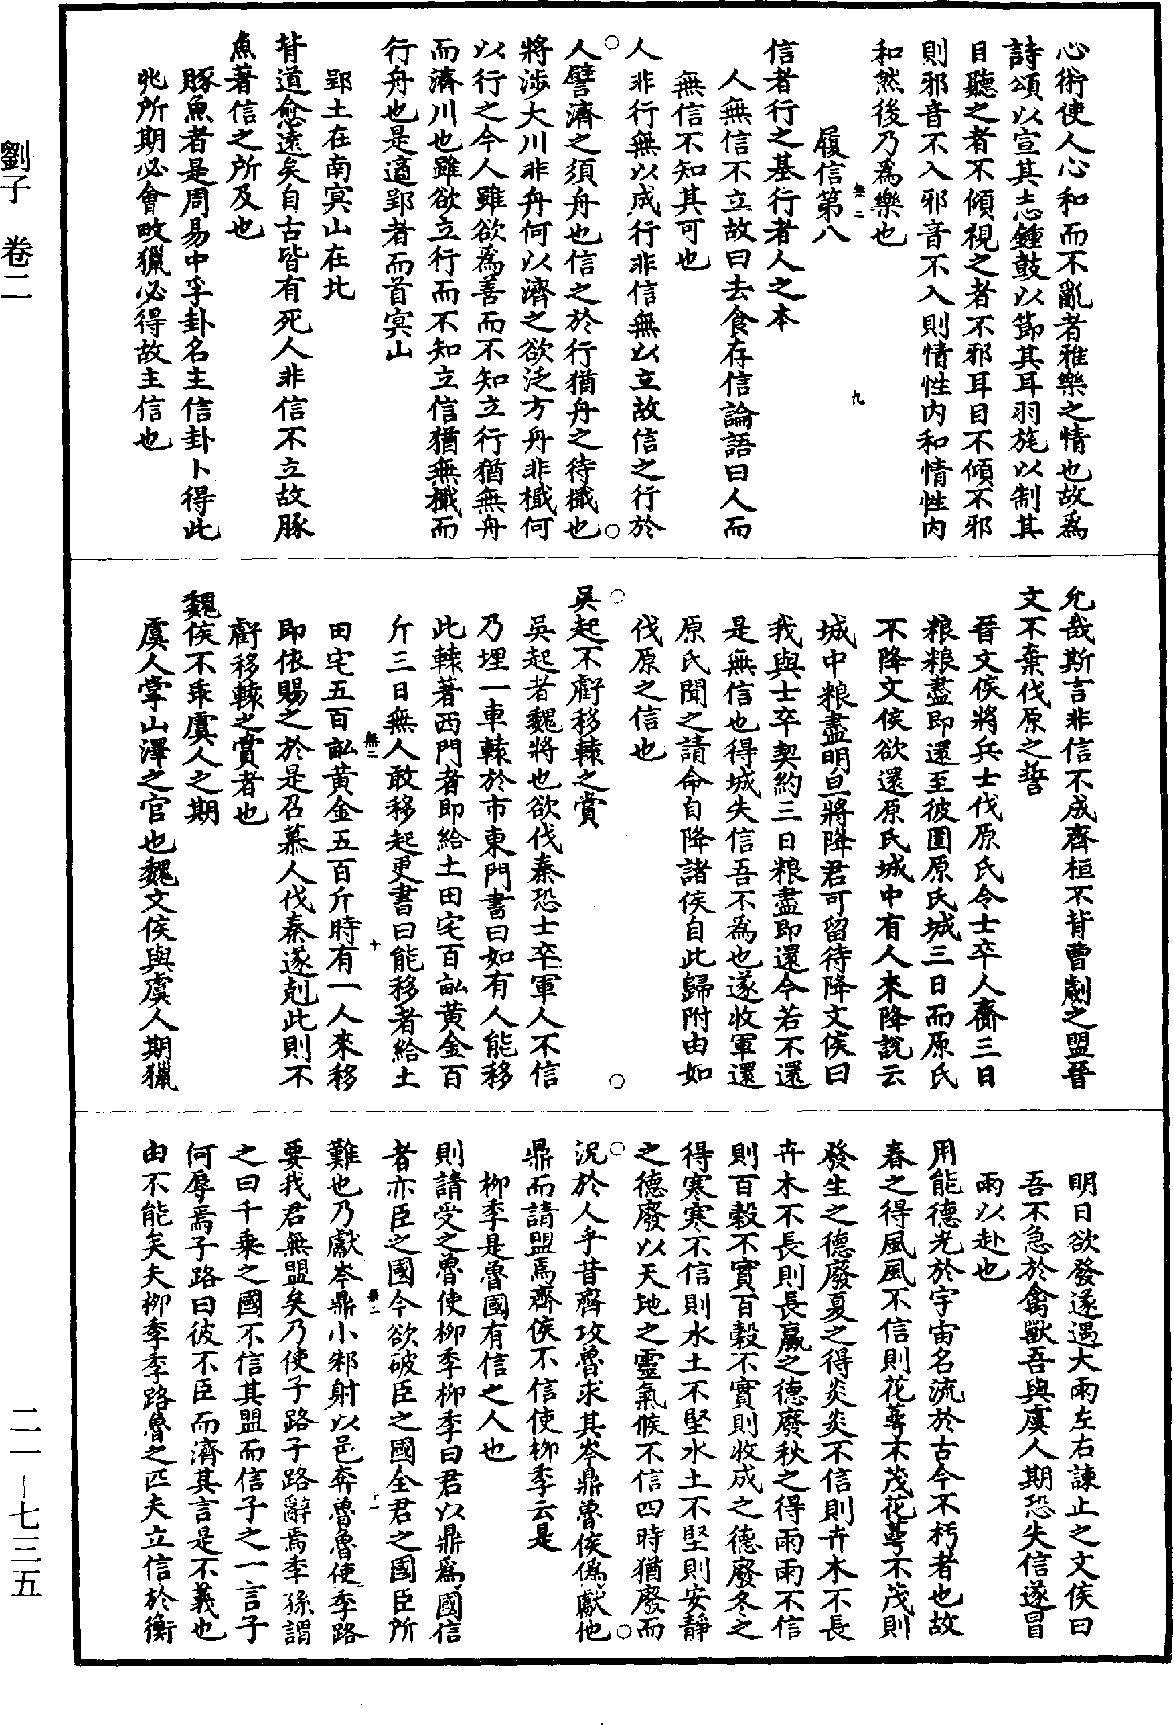 劉子 卷二
心術使人心和而不亂者雅樂之情也故爲
詩頌以宣其志鍾鼓以節其耳羽旄以制其
目聽之者不傾視之者不邪耳目不傾不邪
則邪音不入邪音不入則情性内和情性内
和然後乃爲樂也
無二 九
履信第八
信者行之基行者人之本
人無信不立故曰去食存信論語曰人而
無信不知其可也
人非行無以成行非信無以立故信之行於
人譬濟之須舟也信之於行猶舟之待檝也
將涉大川非舟何以濟之欲泛方舟非檝何
以行之今人雖欲爲善而不知立行猶無舟
而濟川也雖欲立行而不知立信猶無檝而
行舟也是適郢者而首㝠山
郢土在南㝠山在北
背道愈遠矣自古皆有死人非信不立故豚
魚著信之所及也
豚魚者是周易中孚卦名主信卦卜得此
兆所期必會畋獵必得故主信也
允哉斯言非信不成齊桓不背曹劌之盟晉
文不棄伐原之誓
晉文侯將兵士伐原氏令士卒人齎三日
粮粮盡即還至彼圍原氏城三日而原氏
不降文侯欲還原氏城中有人來降說云
城中粮盡明旦將降君可留待降文侯曰
我與士卒契約三日粮盡即還今若不還
是無信也得城失信吾不為也遂收軍還
原氏聞之請命自降諸侯自此歸附由如
伐原之信也
吳起不虧移轅之賞
吳起者魏將也欲伐秦恐士卒軍人不信
乃埋一車轅於市東門書曰如有人能移
此轅著西門者即給土田宅百畝黄金百
斤三日無人敢移起更書曰能移者給土
無二 十
田宅五百畝黄金五百斤時有一人來移
即依賜之於是召募人伐秦遂剋此則不
虧移轅之賞者也
魏侯不乖虞人之期
虞人掌山澤之官也魏文侯與虞人期獵
明日欲發遂遇大雨左右諫止之文侯曰
吾不急於禽獸吾與虞人期恐失信遂冒
雨以赴也
用能德光於宇宙名流於古今不朽者也故
春之得風風不信則花萼不茂花萼不茂則
發生之德廢夏之得炎炎不信則卉木不長
卉木不長則長嬴之德廢秋之得雨雨不信
則百穀不實百穀不實則收成之德廢冬之
得寒寒不信則水土不堅水土不堅則安靜
之德廢以天地之靈氣候不信四時猶廢而
況於人乎昔齊攻魯求其岑鼎魯侯僞獻他
鼎而請盟焉齊侯不信使柳季云是
柳季是魯國有信之人也
則請受之魯使柳季柳季曰君以鼎爲國信
者亦臣之國今欲破臣之國全君之國臣所
無二
難也乃獻岑鼎小邾射以邑奔魯魯使季路
要我君無盟矣乃使子路子路辭焉季孫謂
之曰千乘之國不信其盟而信子之一言子
何辱焉子路曰彼不臣而濟其言是不義也
由不能矣夫柳季季路魯之匹夫立信於衡
二一-七三五